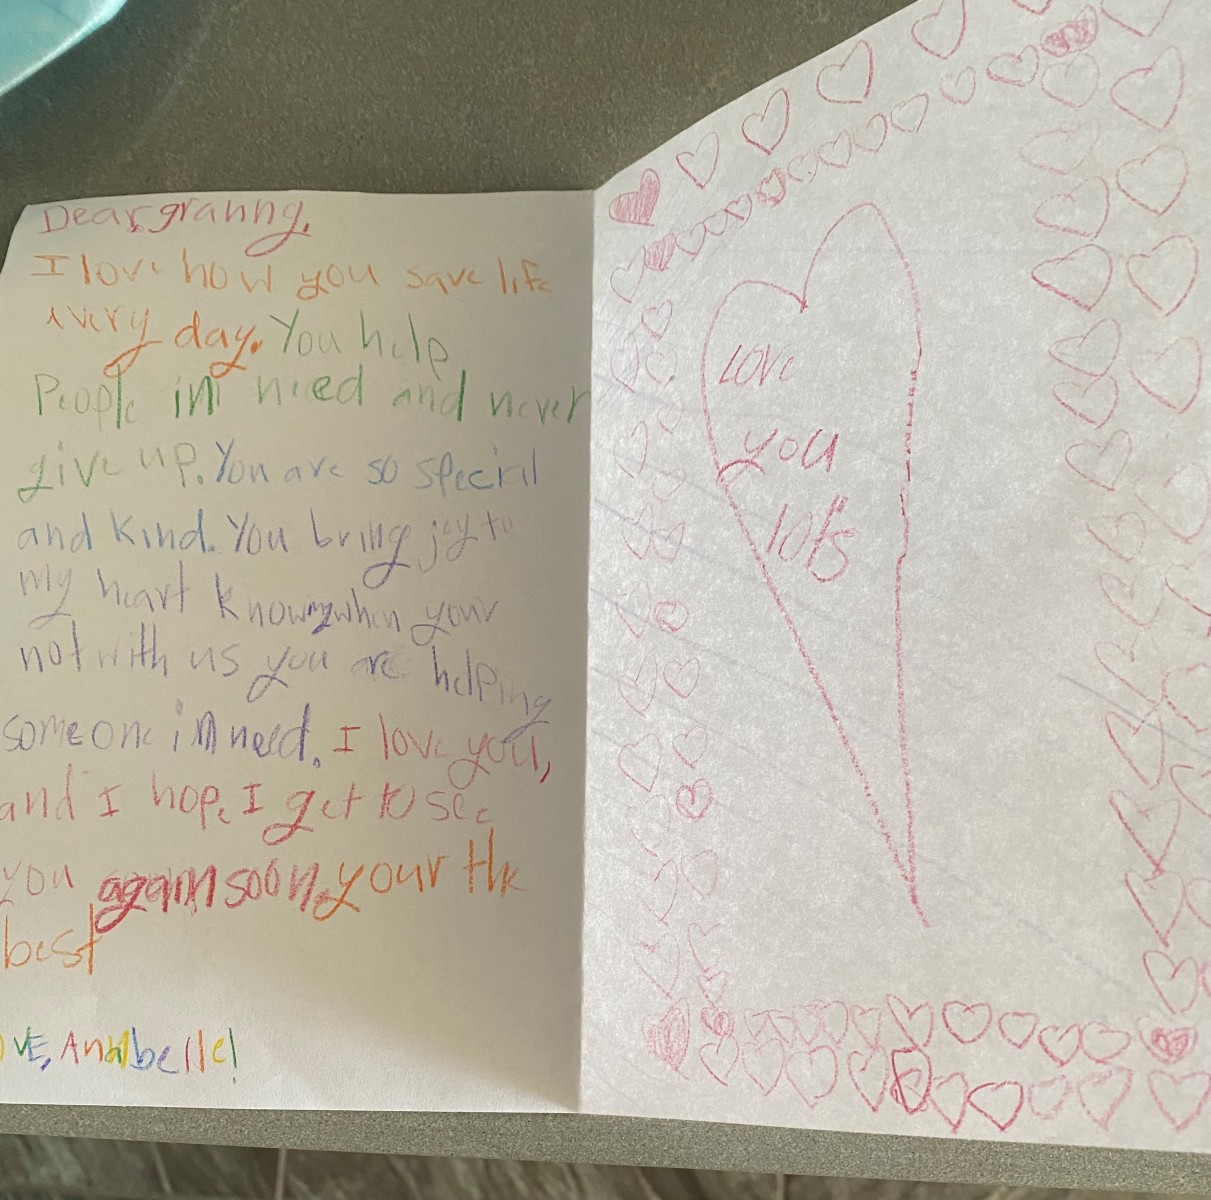 Dear, granny,
I love how you save life
every day. You help
People in need and never
give up. You are so special
and kind. You bring joy to
my heart knowing when your
not with us you are helping
someone in need. I love you,
and I hope I get to see
you again soon. your the
best
OVE, Annabelle!
Love
you
lots